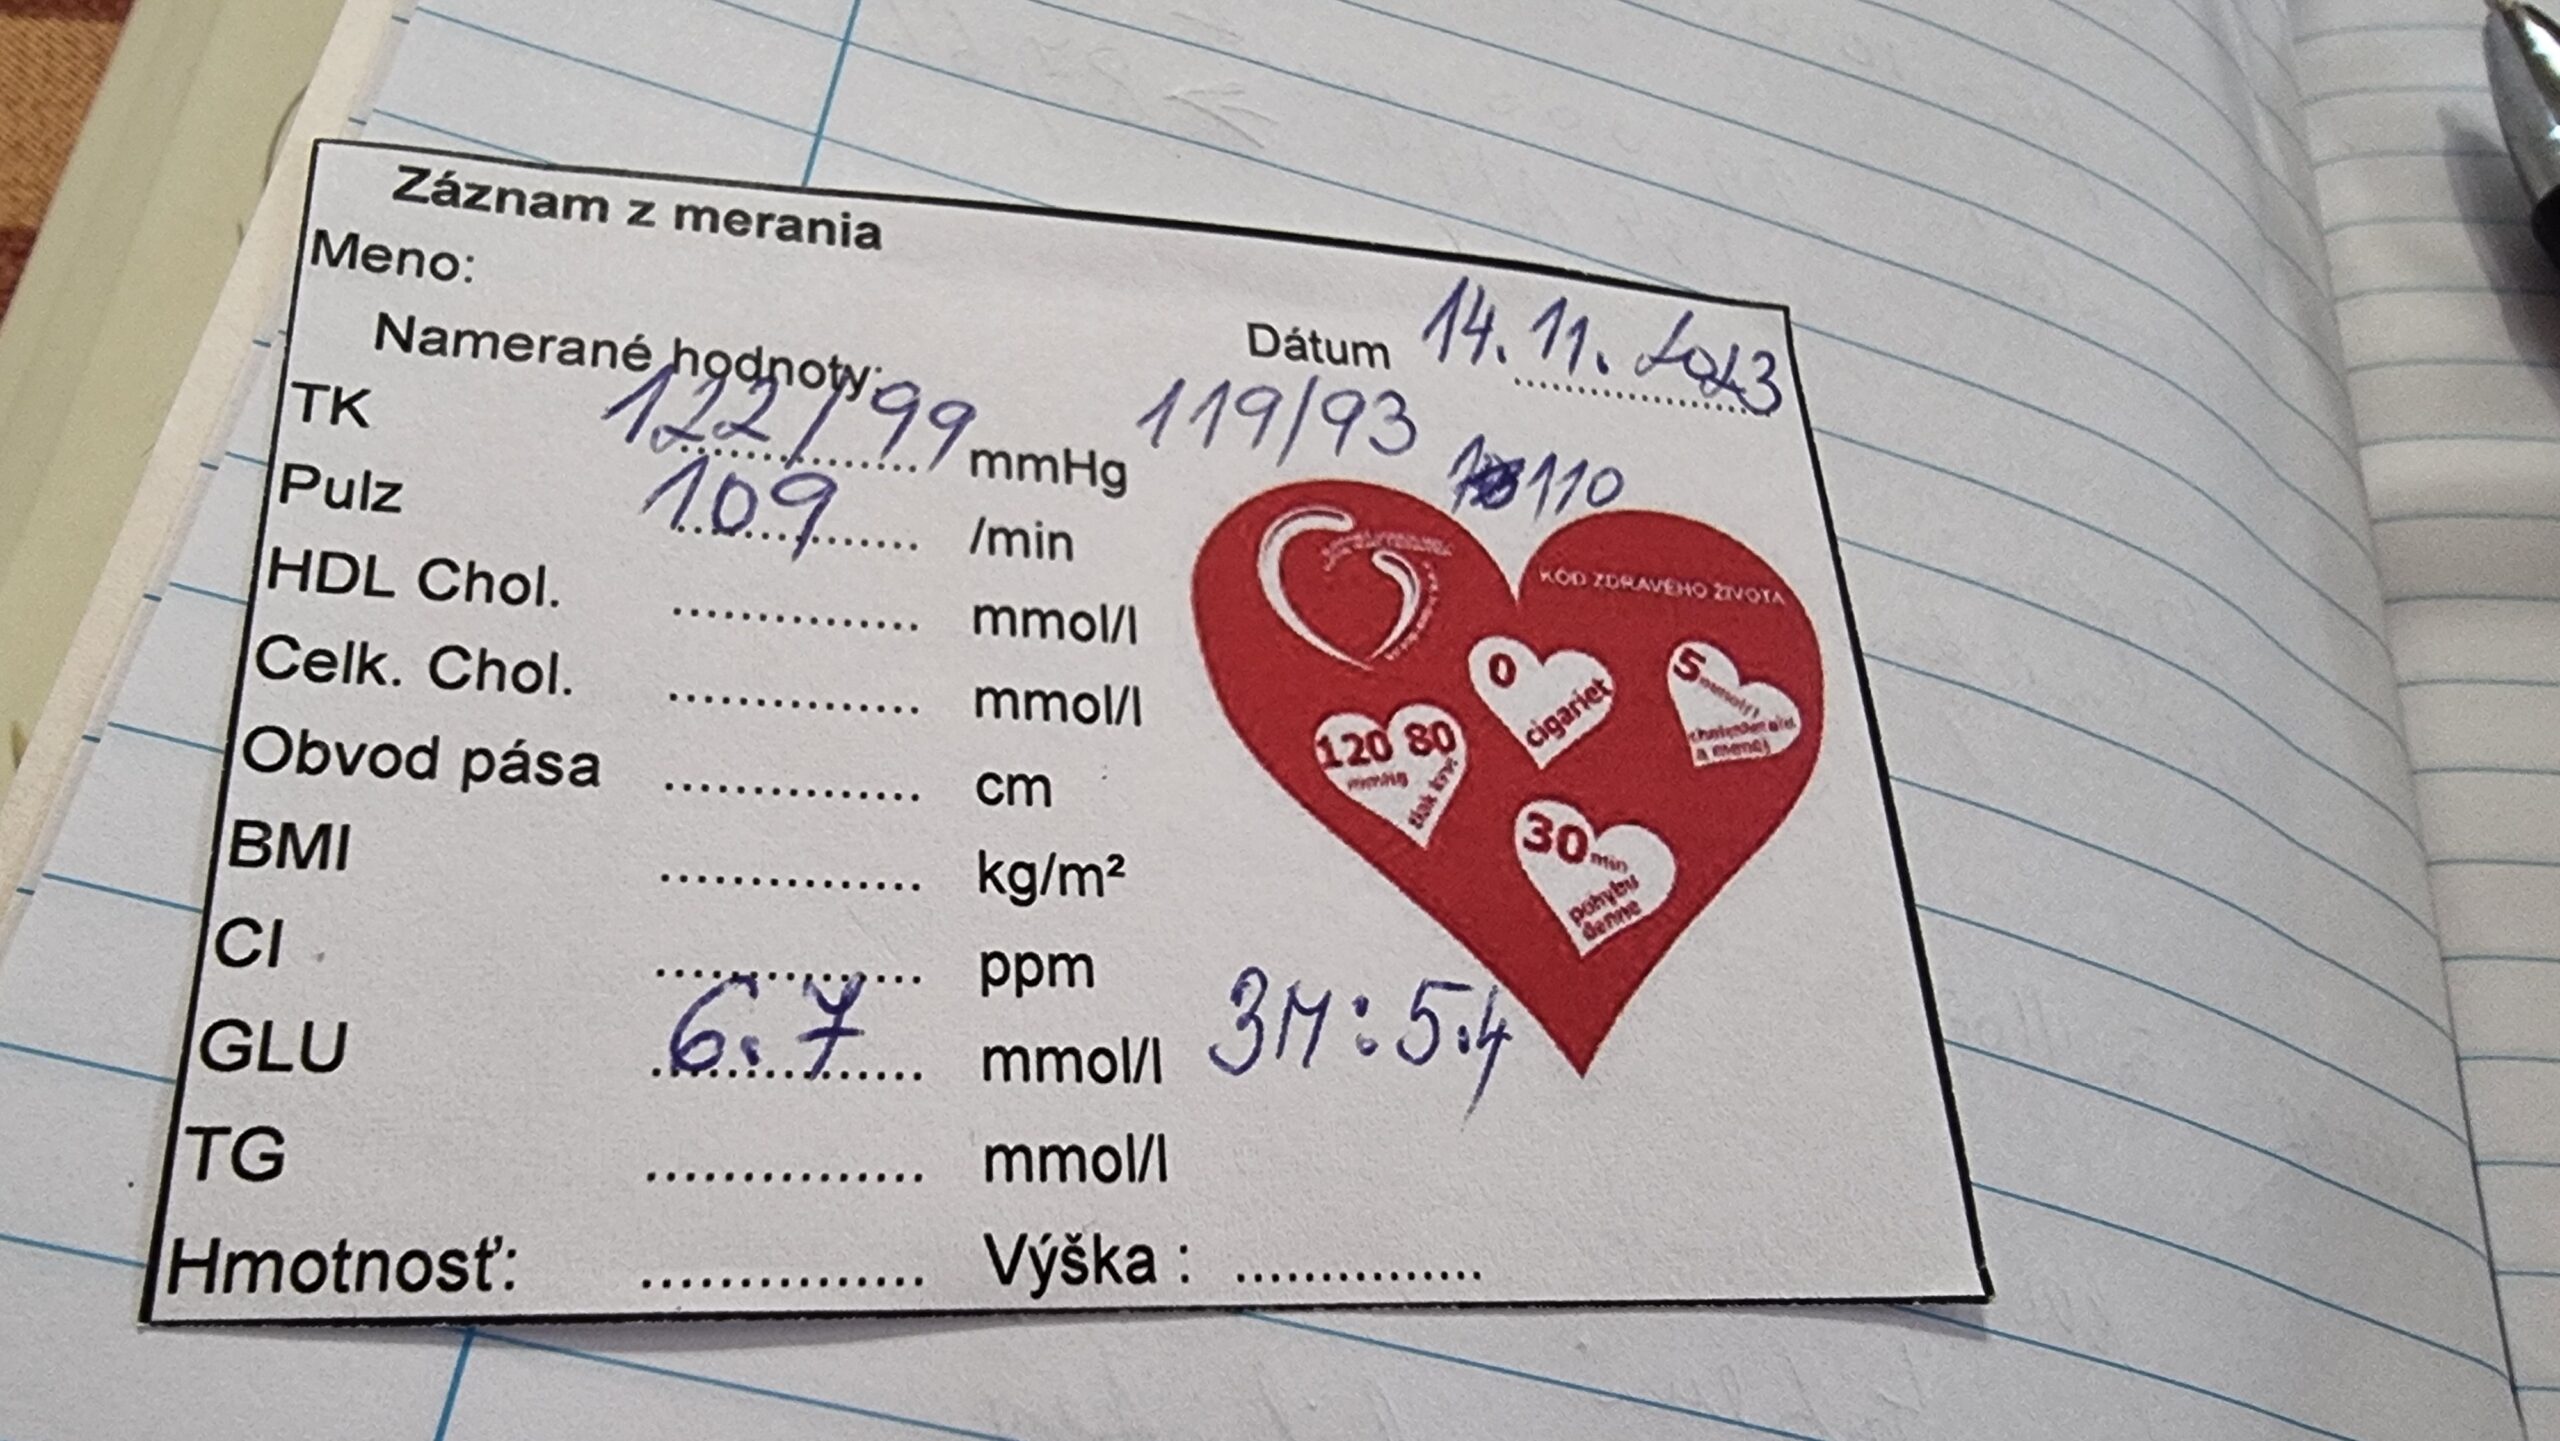 Záznam z merania
Meno:
Dátum 14. 11. 2023
Namerané hodnoty:
TK 122/99 mmHg 119/93
Pulz 109 /min 110
HDL Chol. ............... mmol/l
Celk. Chol. ............... mmol/l
Obvod pása ............... cm
BMI ............... kg/m²
CI ............... ppm
GLU 6.7 mmol/l 3M: 5.4
TG ............... mmol/l
Hmotnosť: ............... Výška : ...............
KÓD ZDRAVÉHO ŽIVOTA
0
cigariet
5 mmol/l
cholesterolu
a menej
120 80
mmHg
tlak krvi
30 min
pohybu
denne